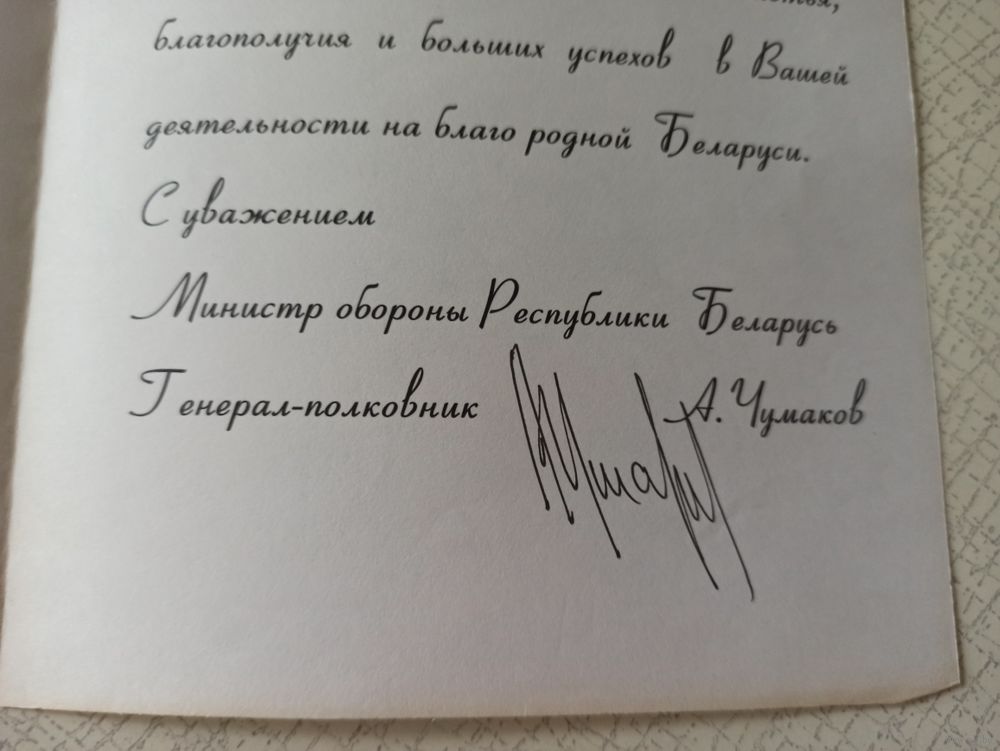 благополучия и больших успехов в Вашей
деятельности на благо родной Беларуси.
С уважением
Министр обороны Республики Беларусь
Генерал-полковник А. Чумаков